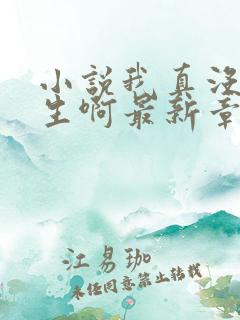 小说我真没
生啊最新章
江易珈
未经同意禁止转载